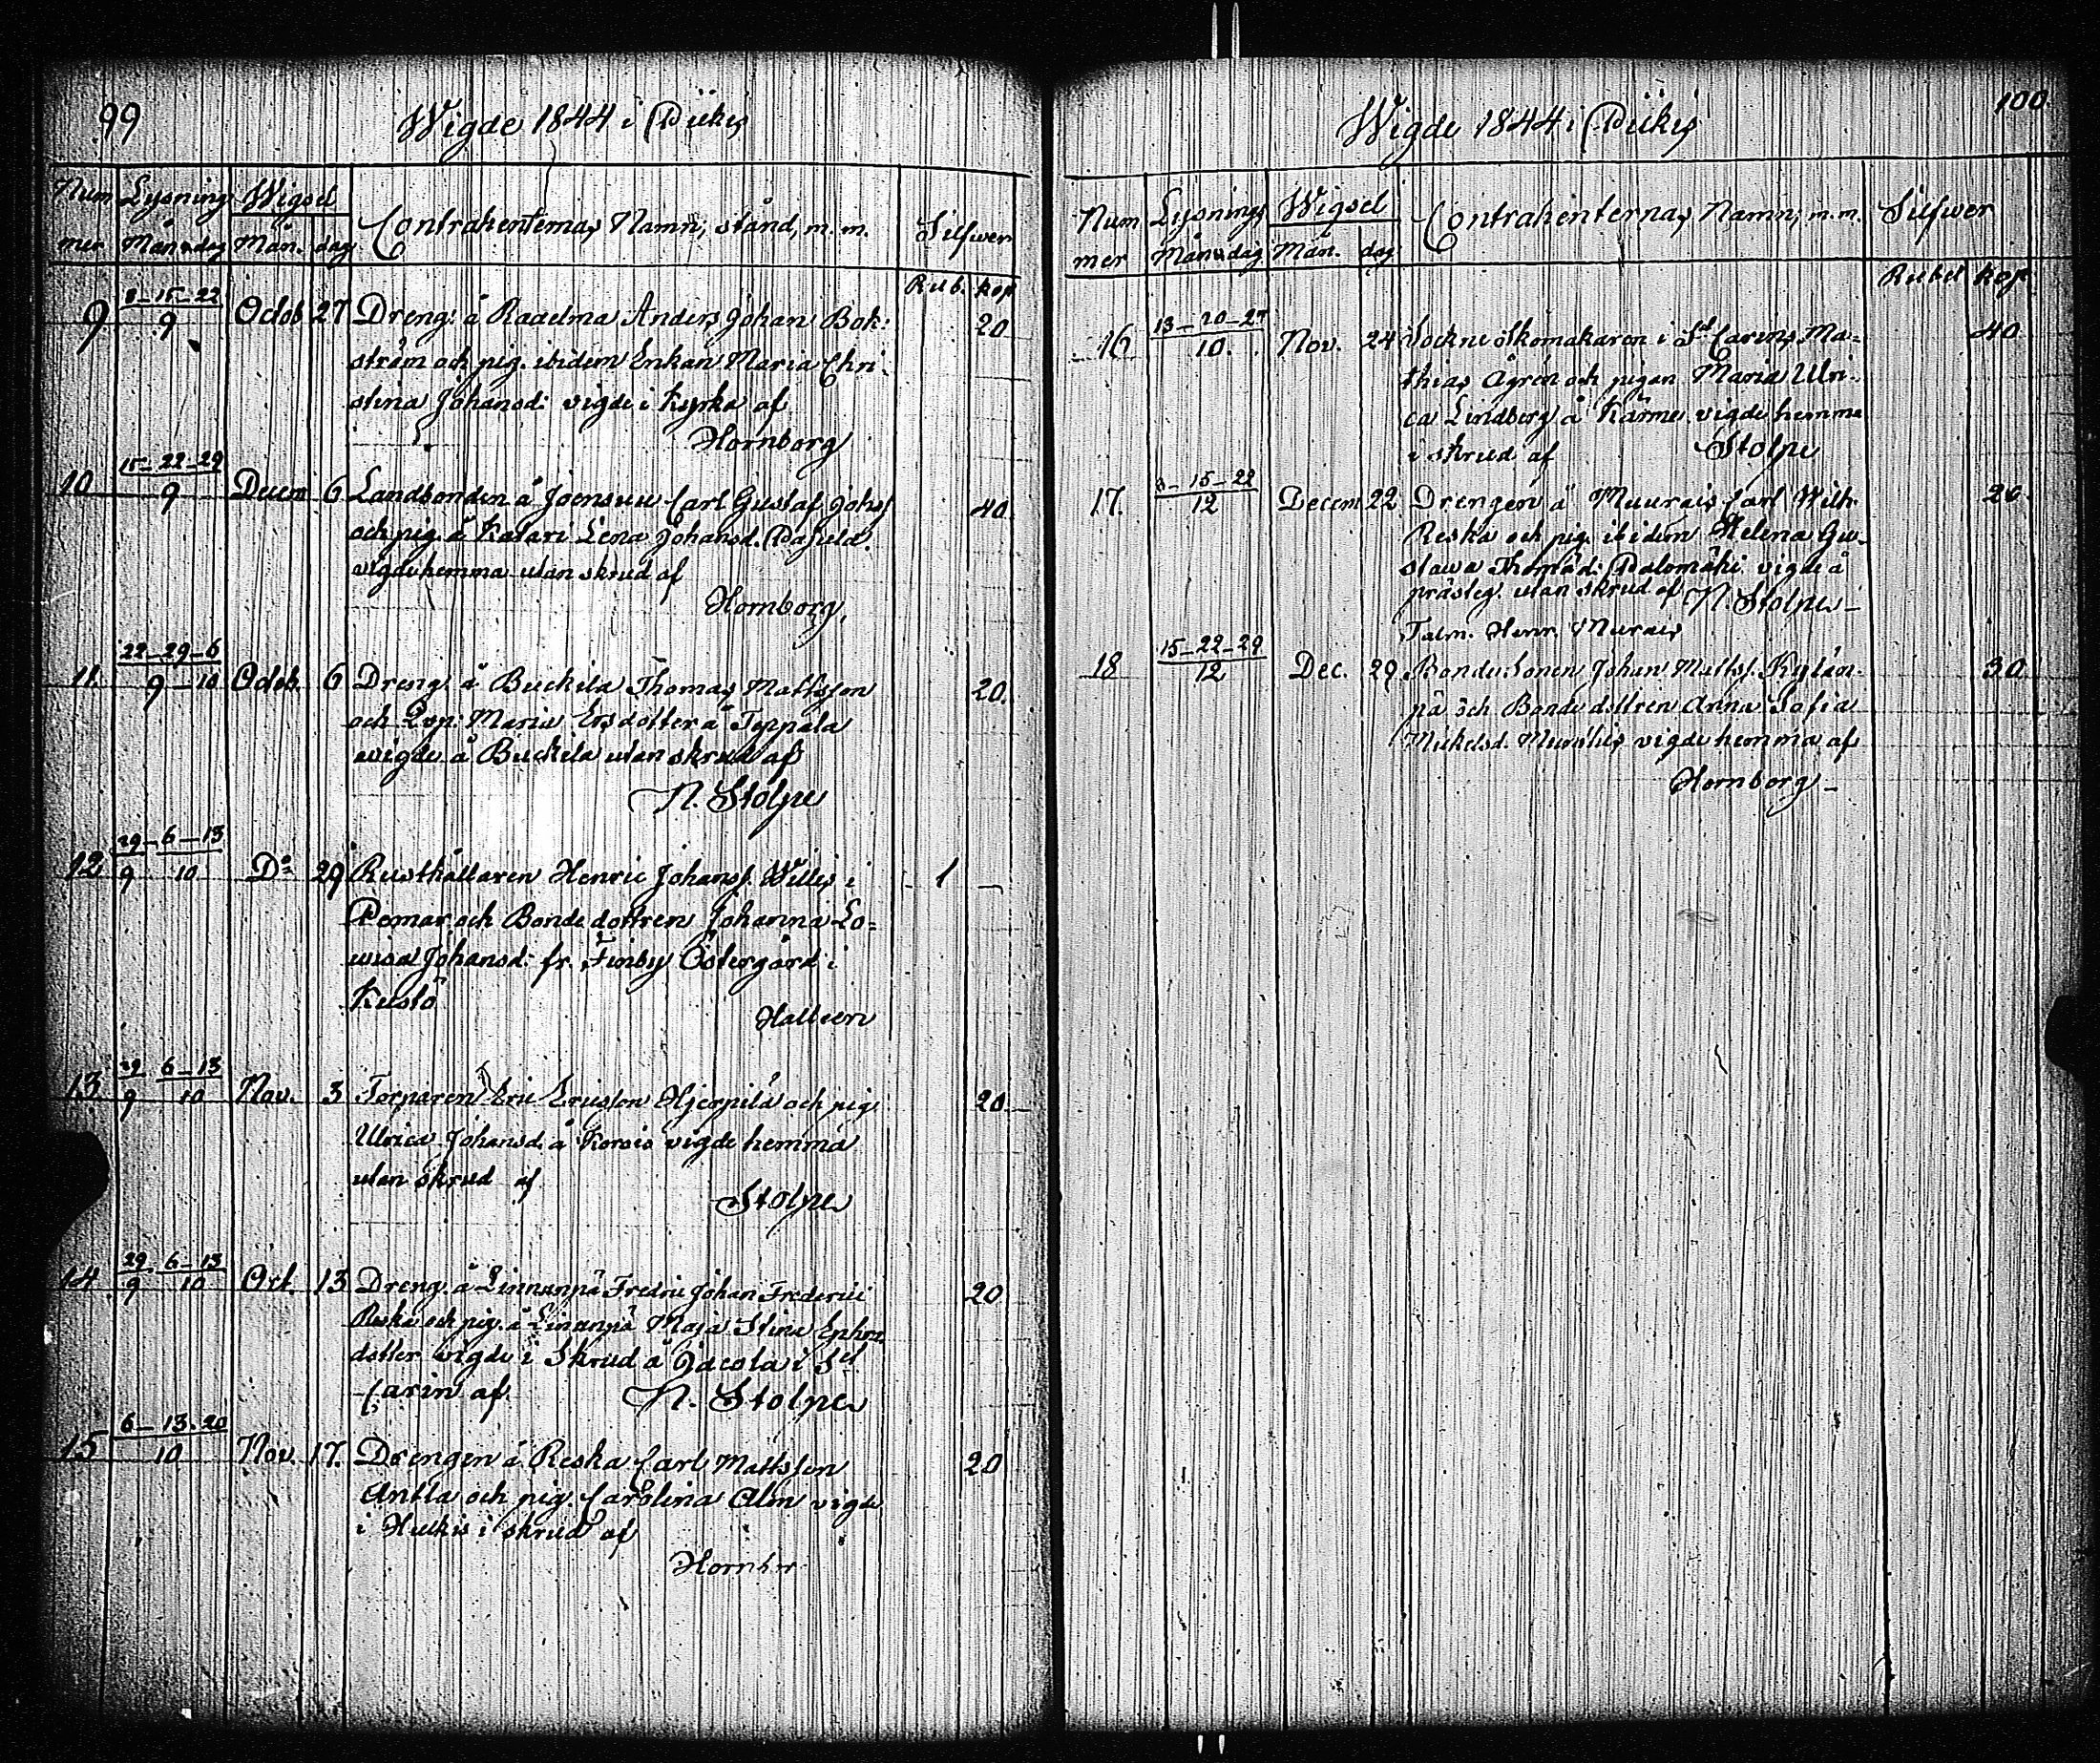 99
Wigde 1844 i Piikis
Num Lysning Wigsel
mer Mån. dag Mån. dag Contrahenternas Namn, stånd, m.m. Silfwer
Rub. kop
8-15-22
9 9 Octob 27 Dreng. å Raadelma Anders Johan Bok: 20
ström och pig. ibidem Enkan Maria Chri
stina Johansd: vigde i Kyrka af
Hornborg
15-22-29
10 9 Decem 6 Landbonden å Joensuu Carl Gustaf Johs 40
och pig. å Katari Lena Johansd.
vigde hemma utan skrud af
Hornborg
22-29-6
11. 9-10 Octob. 6 Dreng å Buckila Thomas Mattsson 20.
och Maria Ersdotter å Toppala
wigde å Buckila utan skrud af
N. Stolpe
29-6-13
12 9 10 Do 29 Rusthållaren Henric Johanss. Willis i 1 —
Pemar och Bonde dottren Johanna Lo=
wisa Johansd: fr. Finby Östergård i
Kustö
29 6-13
13 9 10 Nov. 3 Torparen Eric Ericsson Hjerpilä och pig 20
Ulrica Johansd. å vigde hemma
utan skrud af
Stolpe
29 6-13
14 9 10 Oct. 13 Dreng. å Linnunpä Fredric Johan Frederici 20
Reska och pig. å Linunpä Maja Stina Ephra
dotter vigde i Skrud å Jacola i Set
Carin af N. Stolpe
6-13-20
15 10 Nov. 17. Drengen å Reska Carl Mattsson 20
Antla och pig. Carolina Alm vigde
i Huckis i skrud af
100
Wigde 1844 i Piikis
Num Lysnings Wigsel Contrahenternas Namn, m.m. Silfwer
mer Mån. dag Mån. dag
Rubel kop
13-20-27
16 10. Nov. 24 Sockne Skomakaren i St Carins Ma= 40
thias Ågren och pigan Maria Ulri=
ca Lindberg å Kärme vigde hemma
i skrud af Stolpe
8-15-22
17. 12 Decem 22 Drengen å Muurais Carl Wilh. 20
Reska och pig. ibidem Helena Gu=
stawa Thomasd: Palomäki vigde å
prästeg. utan skrud af N. Stolpe -
Talm. Henr. Murais
15-22-29
18 12 Dec. 29 Bonde Sonen Johan Matss. Kylän= 30
pä och Bonde dottren Anna Sofia
Mickelsd. vigde hemma af
Hornborg -